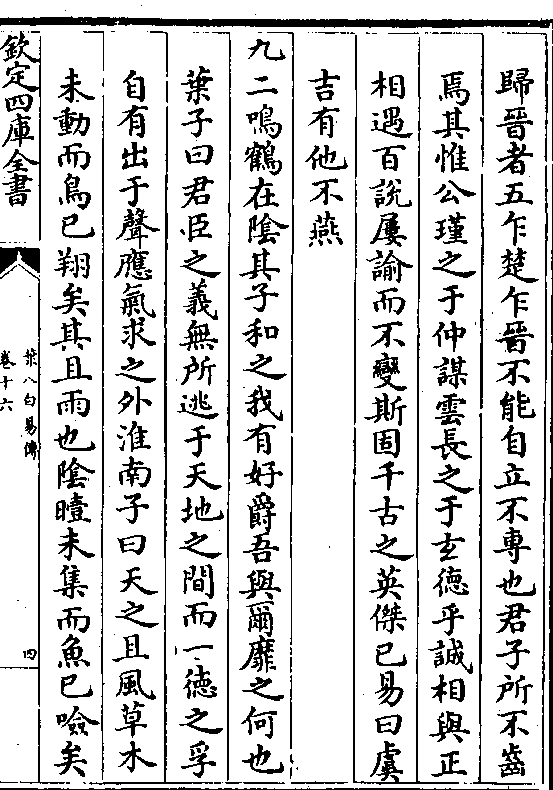 歸晉者五乍楚乍晉不能自立不專也君子所不齒
焉其惟公瑾之于仲謀雲長之于玄德乎誠相與正
相遇百說屢諭而不變斯固千古之英傑已易曰虞
吉有他不燕
九二鳴鶴在陰其子和之我有好爵吾與爾靡之何也
葉子曰君臣之義無所逃于天地之間而一德之孚
自有出于聲應氣求之外淮南子曰天之且風草木
未動而鳥已翔矣其且雨也陰曀未集而魚已噞矣
欽定四庫全書
葉八白易傳
卷十六
四